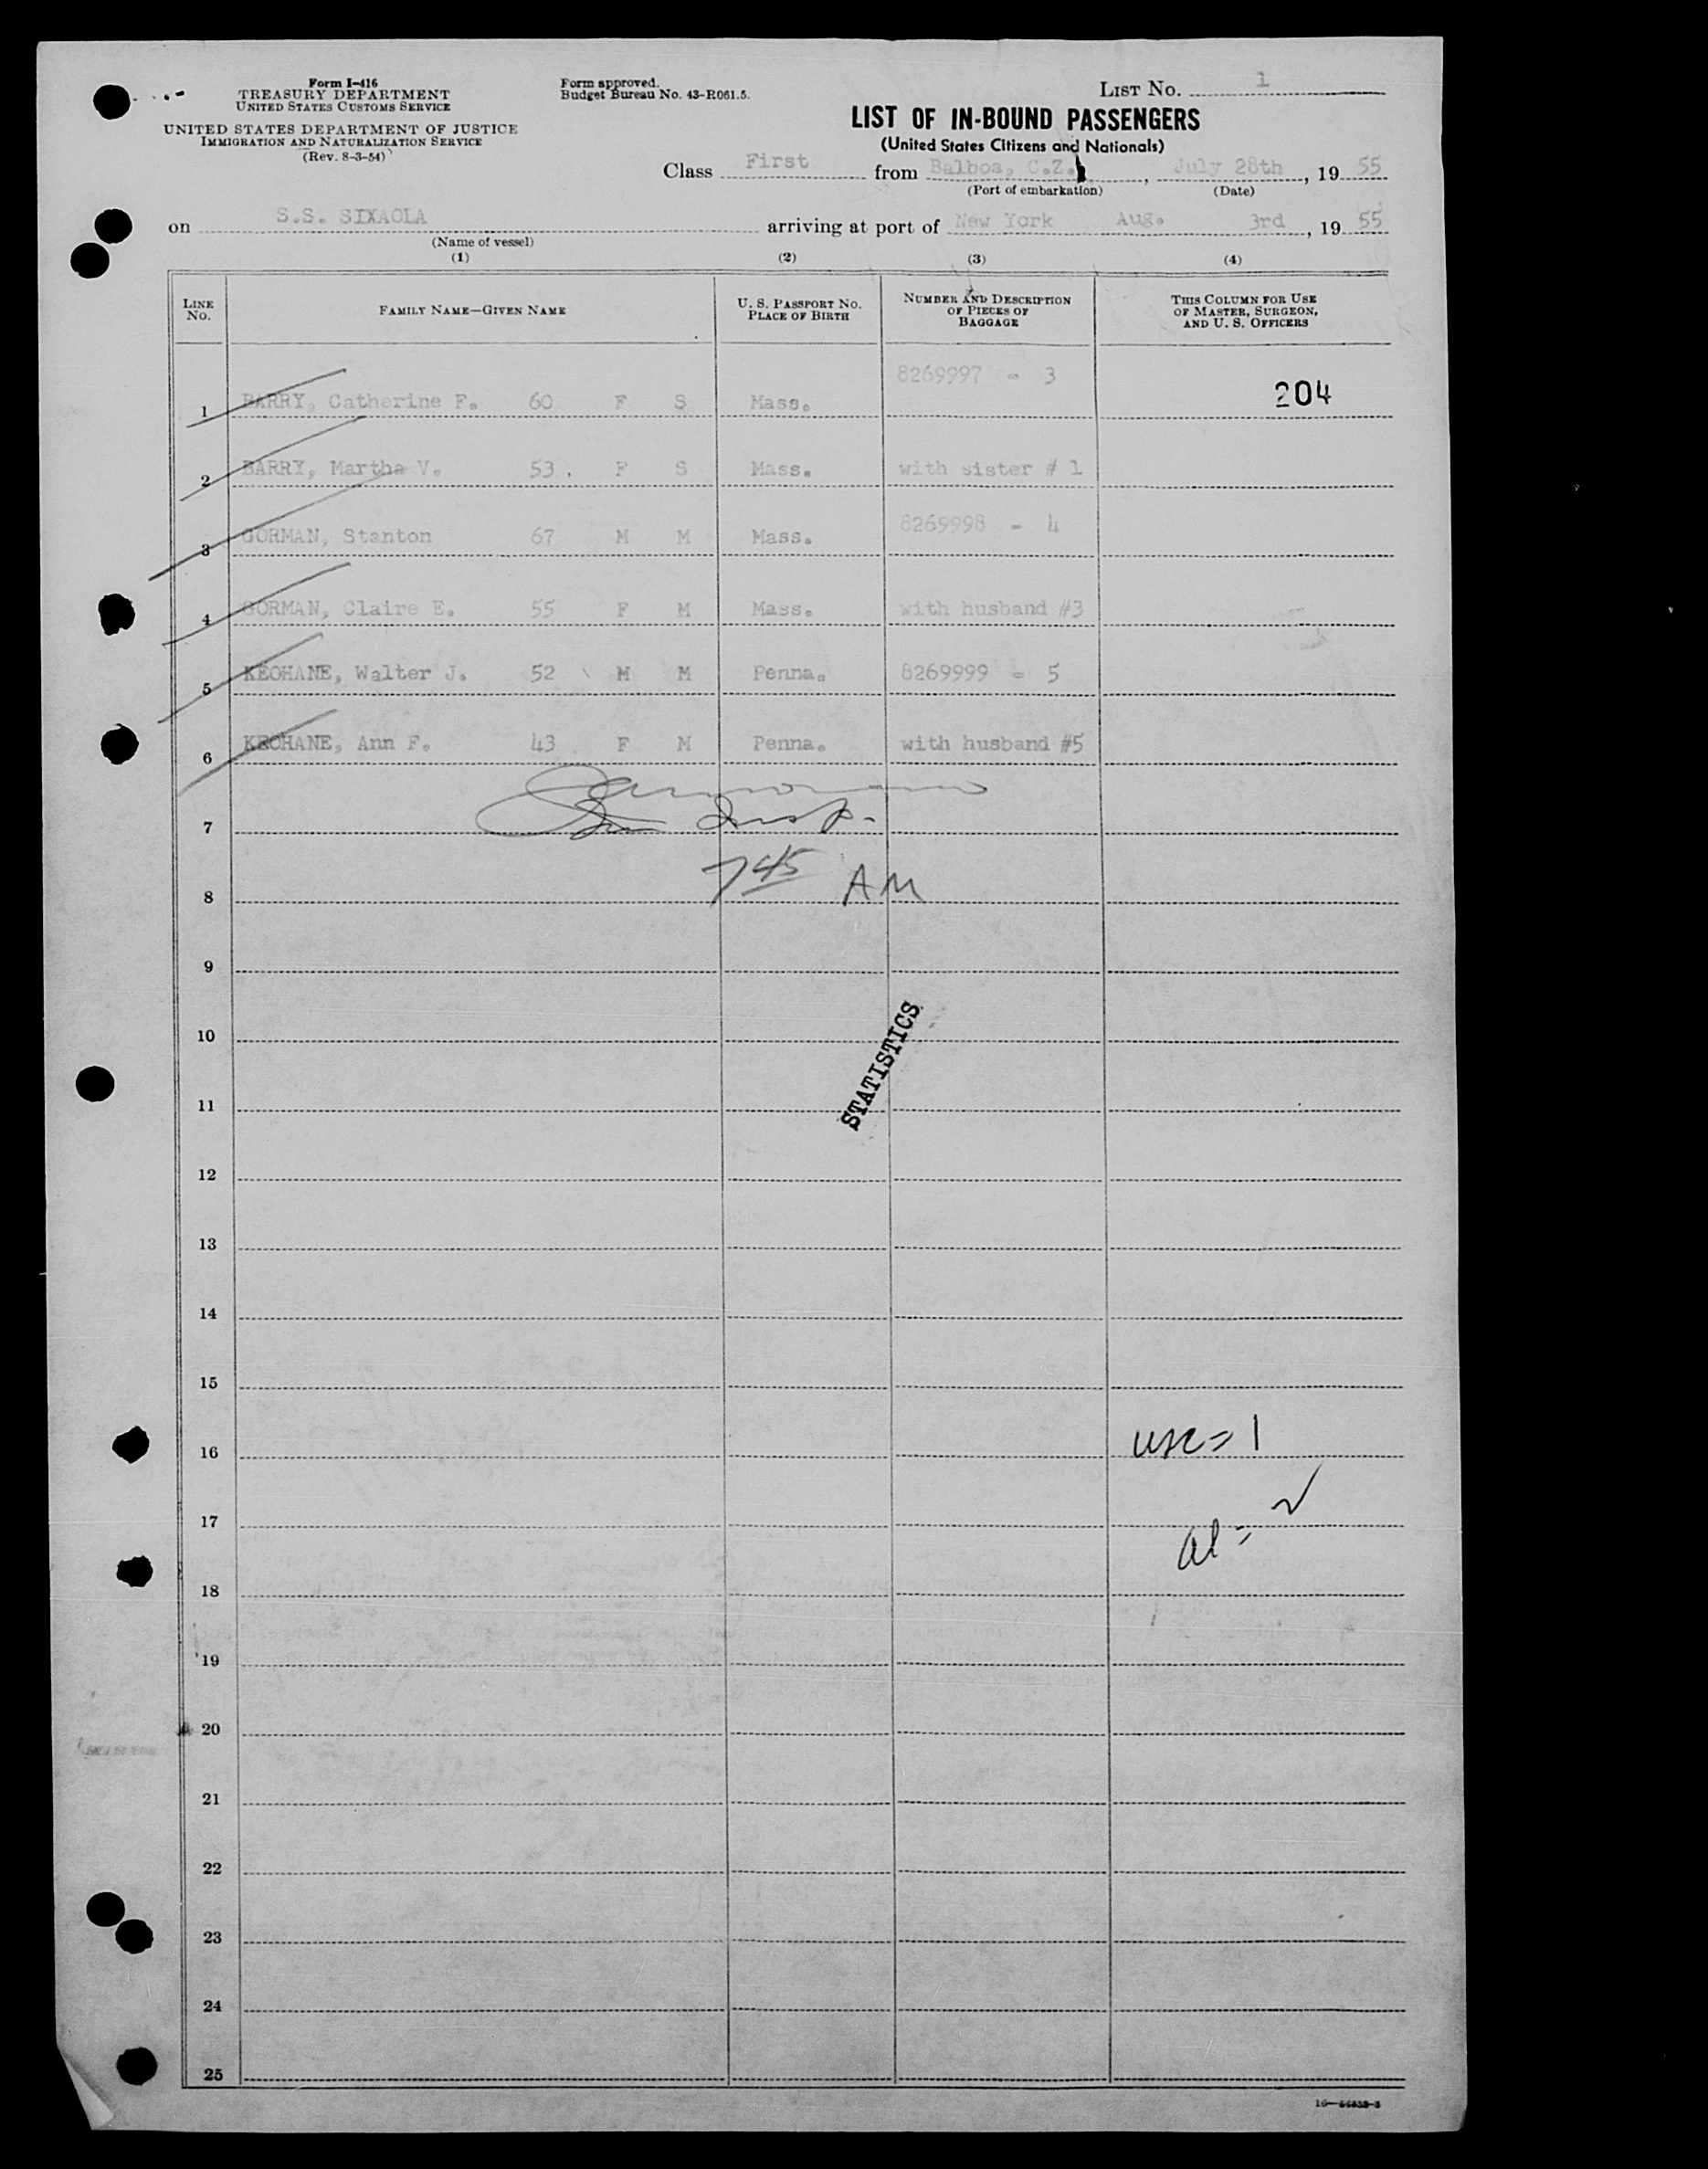 Form I-416
TREASURY DEPARTMENT
UNITED STATES CUSTOMS SERVICE
UNITED STATES DEPARTMENT OF JUSTICE
IMMIGRATION AND NATURALIZATION SERVICE
(Rev. 8-3-54)
Form approved.
Budget Bureau No. 43-R061.5.
LIST NO. 1
LIST OF IN-BOUND PASSENGERS
(United States Citizens and Nationals)
Class First from Balboa, C.Z., July 28th, 19 55
(Port of embarkation) (Date)
on S.S. SIXAOLA arriving at port of New York Aug. 3rd, 19 55
(Name of vessel)
(1) (2) (3) (4)
LINE NO. FAMILY NAME—GIVEN NAME U. S. PASSPORT NO. PLACE OF BIRTH NUMBER AND DESCRIPTION OF PIECES OF BAGGAGE THIS COLUMN FOR USE OF MASTER, SURGEON, AND U. S. OFFICERS
1 BARRY, Catherine F. 60 F S Mass. 8269997 - 3 204
2 BARRY, Martha V. 53 . F S Mass. with sister # 1
3 GORMAN, Stanton 67 M M Mass. 8269998 - 4
4 GORMAN, Claire E. 55 F M Mass. with husband #3
5 KEOHANE, Walter J. 52 M M Penna. 8269999 - 5
6 KEOHANE, Ann F. 43 F M Penna. with husband #5
7 Insp.
8 7 45 AM
9
10
STATISTICS
11
12
13
14
15
16 usc = 1
17
al = 2
18
19
20
21
22
23
24
25